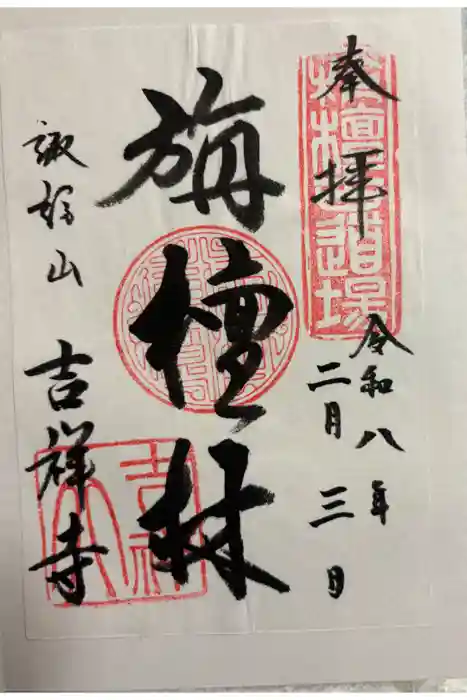 奉拝
令和八年
二月三日
旃檀林
諏訪山 吉祥寺